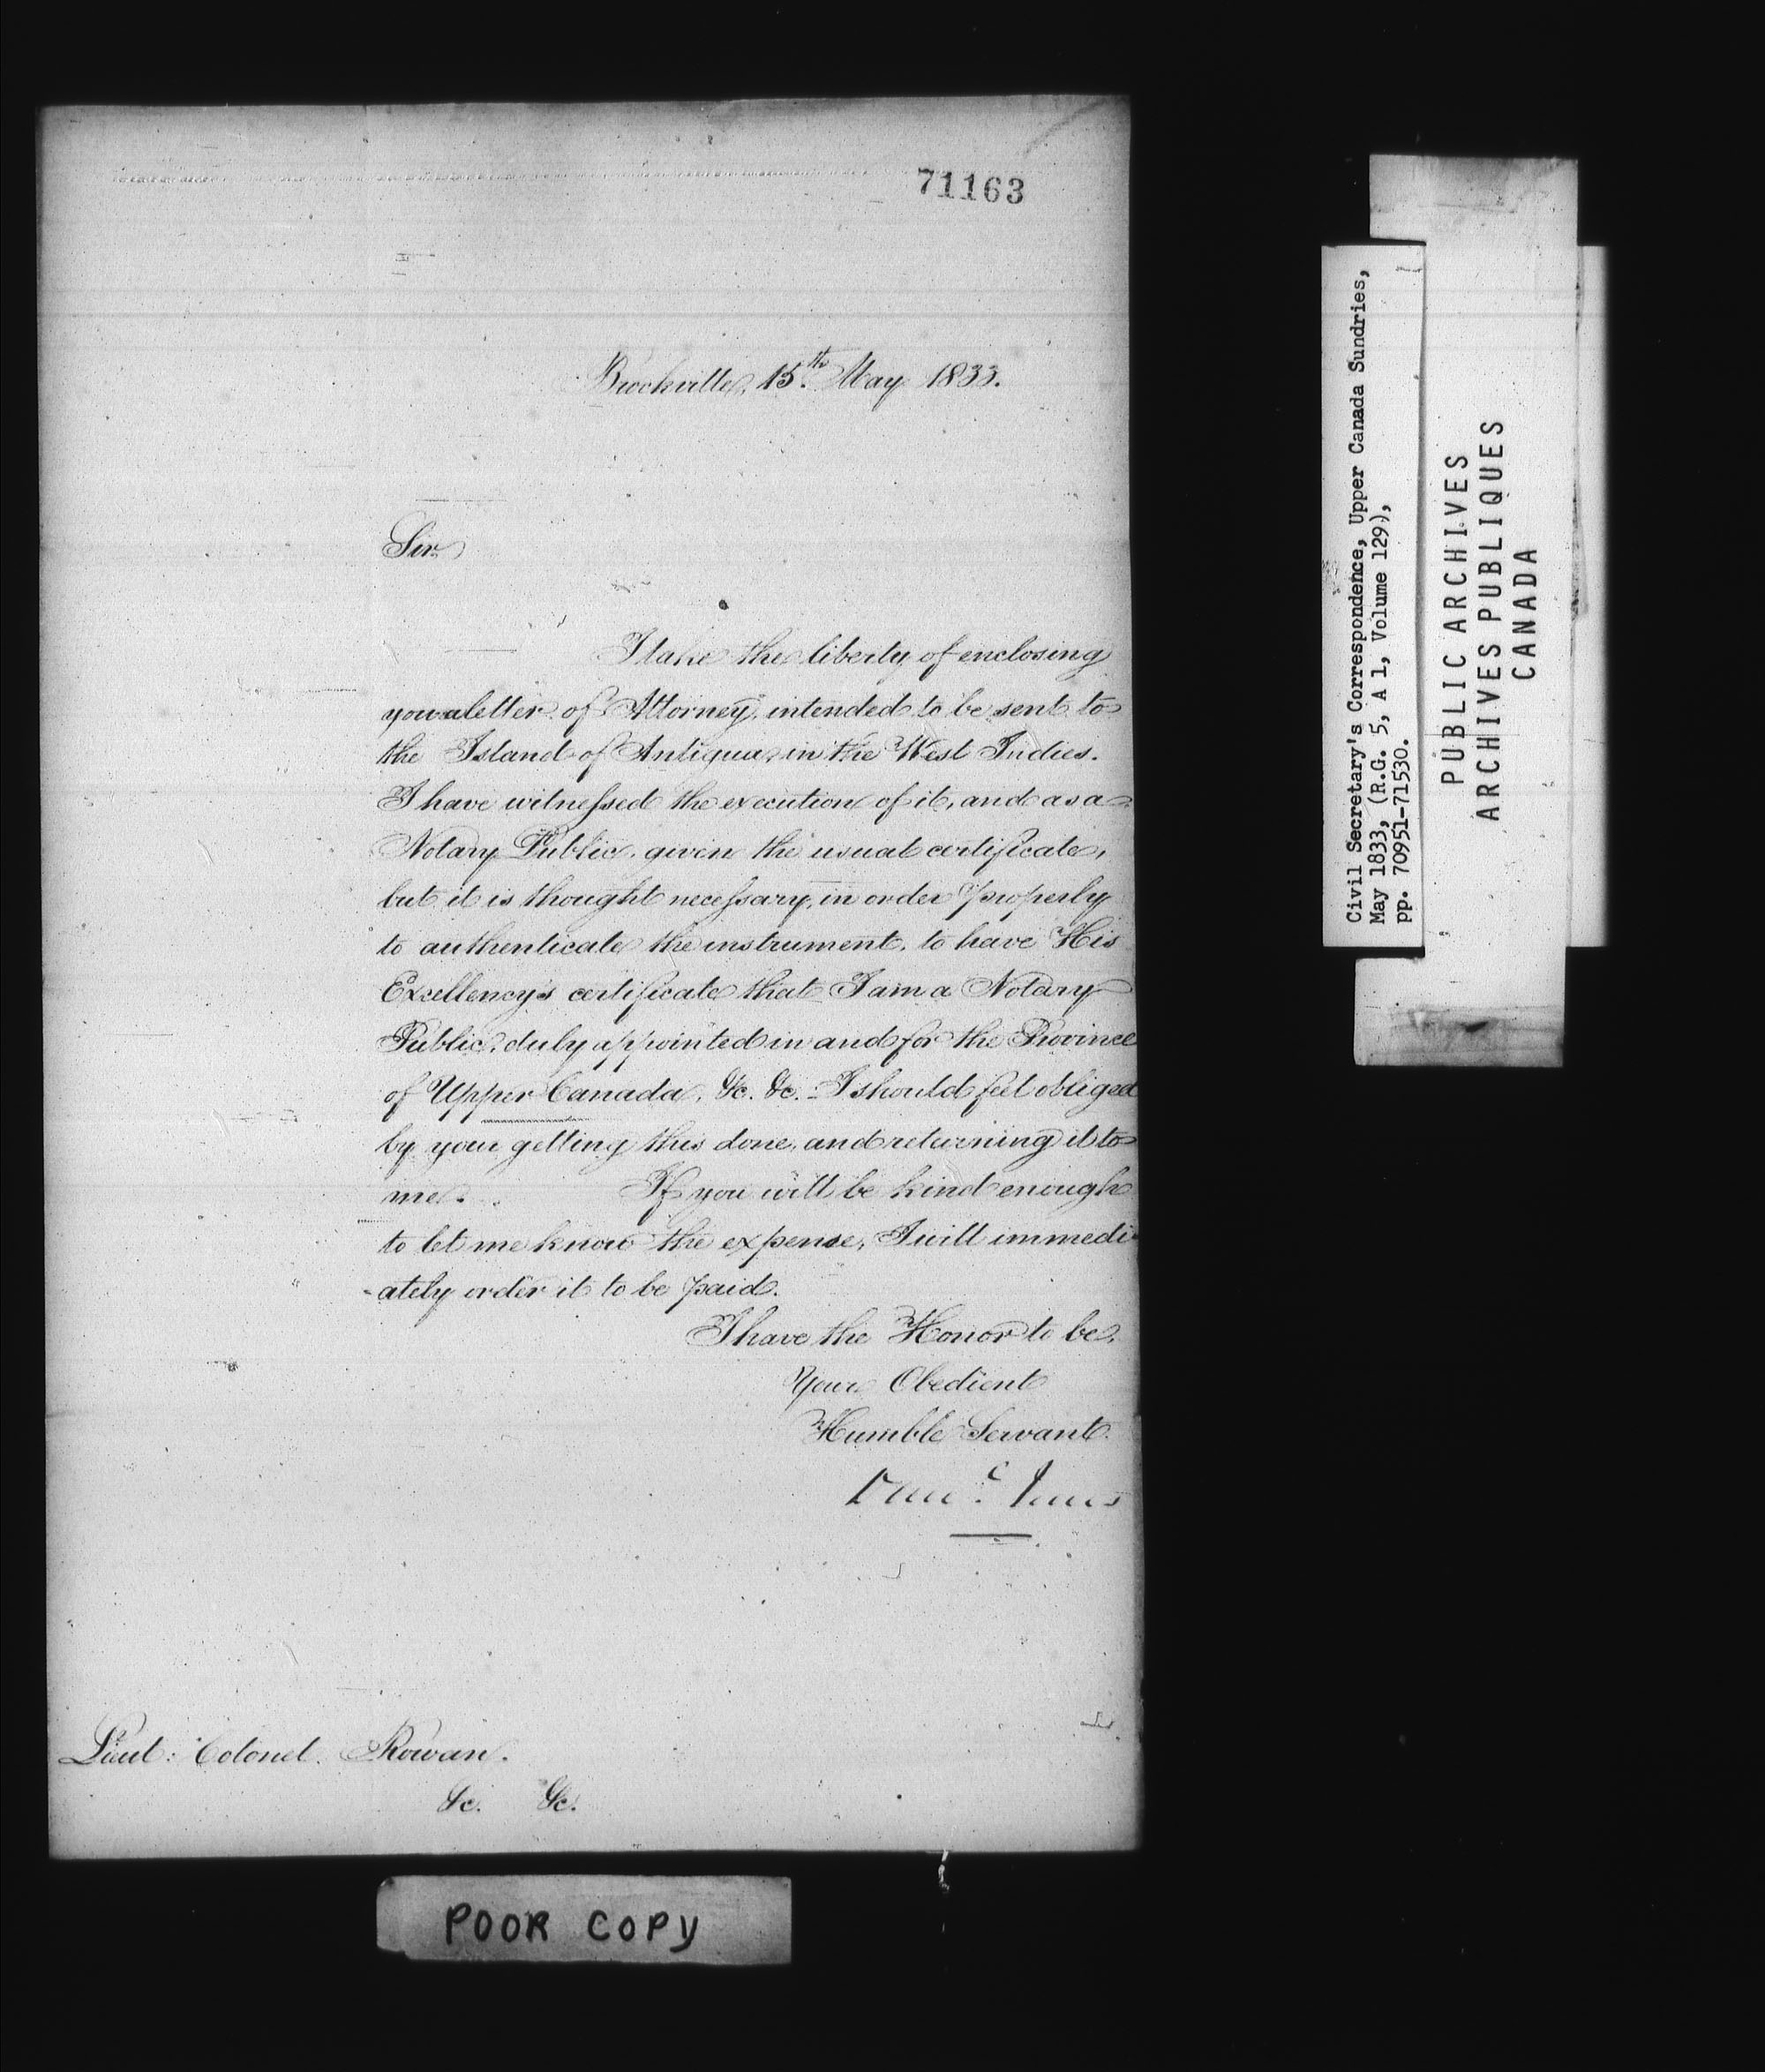 71163
Brockville, 15th May 1833.
Sir
I take the liberty of enclosing
you a letter of Attorney, intended to be sent to
the Island of Antigua, in the West Indies.
I have witnessed the execution of it, and as a
Notary Public, given the usual certificate,
but it is thought necessary, in order properly
to authenticate the instrument, to have His
Excellency's certificate that I am a Notary
Public, duly appointed in and for the Province
of Upper Canada, &c. &c. I should feel obliged
by your getting this done, and returning it to
me. If you will be kind enough
to let me know the expense, I will immedi
-ately order it to be paid.
I have the Honor to be,
Your Obedient
Humble Servant.
Jones
Lieut: Colonel Rowan.
&c. &c.
POOR COPY
Civil Secretary's Correspondence, Upper Canada Sundries,
May 1833, (R.G. 5, A 1, Volume 129),
pp. 70951-71530.
PUBLIC ARCHIVES
ARCHIVES PUBLIQUES
CANADA